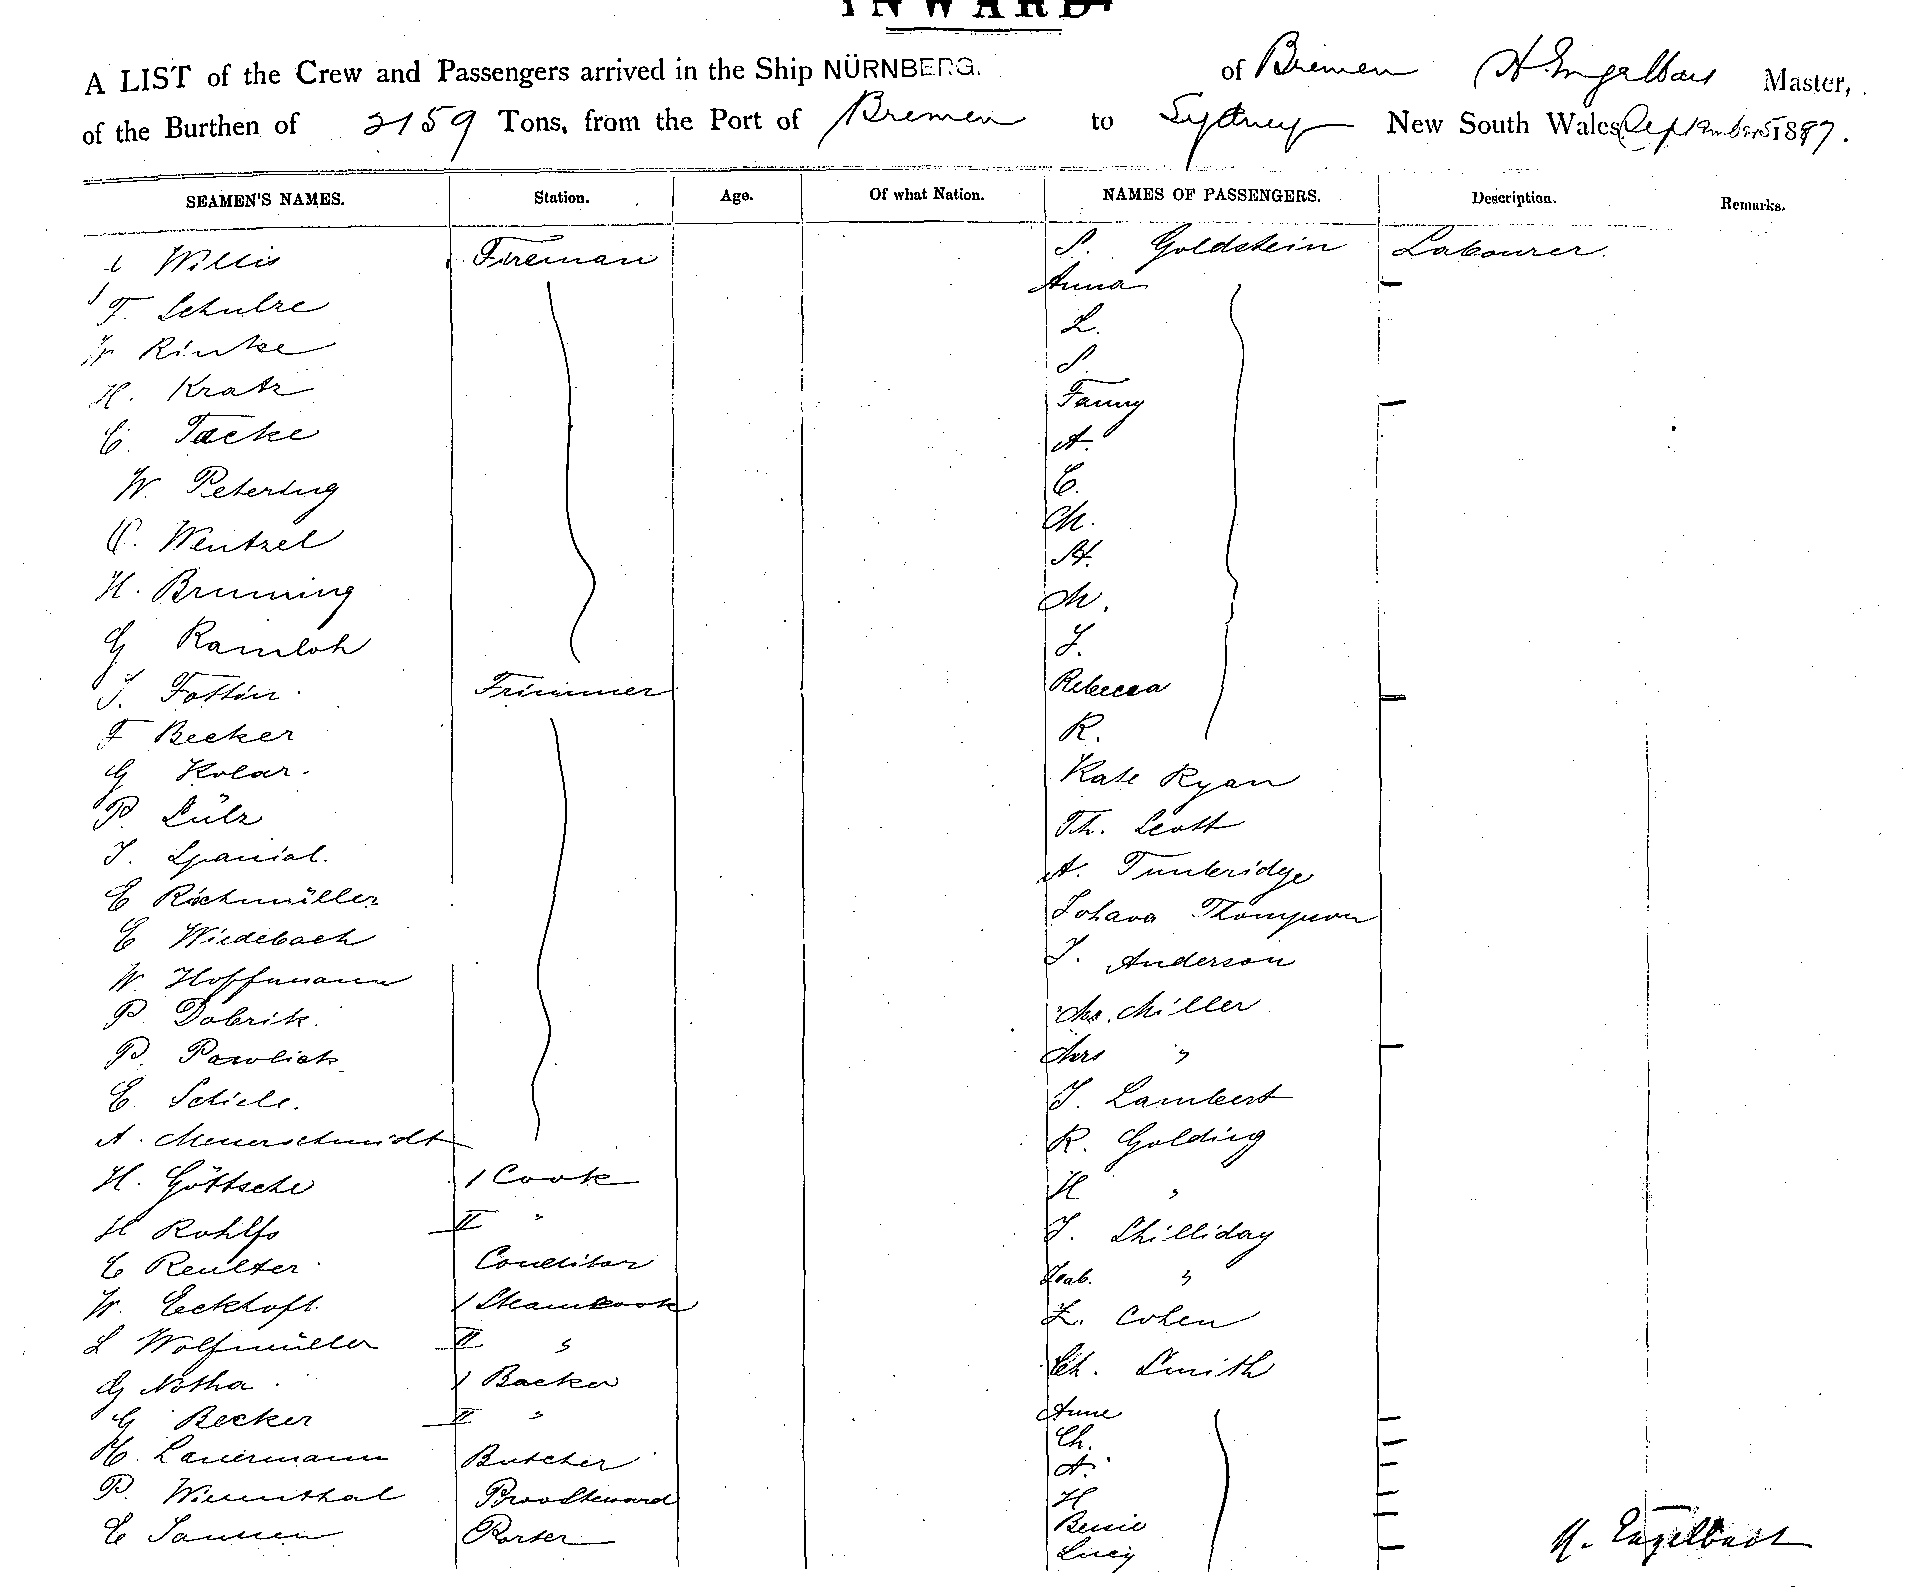 INWARD
A LIST of the Crew and Passengers arrived in the Ship NÜRNBERG. of Bremen H. Engelbart Master,
of the Burthen of 2159 Tons, from the Port of Bremen to Sydney New South Wales September 5 1887.
SEAMEN'S NAMES. Station. Age. Of what Nation. NAMES OF PASSENGERS. Description. Remarks.
Willis Fireman S. Goldstein Labourer.
F. Schulze Anna
Rinke L.
H. Kratz S.
C. Tacke Fanny
A.
W. Petering C.
C. Wentzel M.
H. Brunning H.
M.
G Ramloh J.
J. Fottin. Trimmer Rebecca
F Becker R.
G Kolar. Kate Ryan
P. Lülz Th. Scott
J. Spanial. A. Tunbridge
C Richmüller Johava Thompson
C Wiedebach J. Anderson
W. Hoffmann
P. Dobrik. Mr. Miller
P. Pawliak Mrs "
C. Schiele. J. Lambert
A. Meuerschmidt R. Golding
H. Göttsche 1 Cook H "
H Rohlfs II " J. Shilliday
C Reulter Conditor Isab. "
W. Eckhoft. 1 Steamcook L. Cohen
L Wolfmüller II " Ch. Smith
G Notha. 1 Backer Anne
G Becker II " Ch.
H. Lauermann Butcher A.
P. Wiesenthal Provsteward H
C Janssen Porter Bessie
Lucy
H. Engelbart